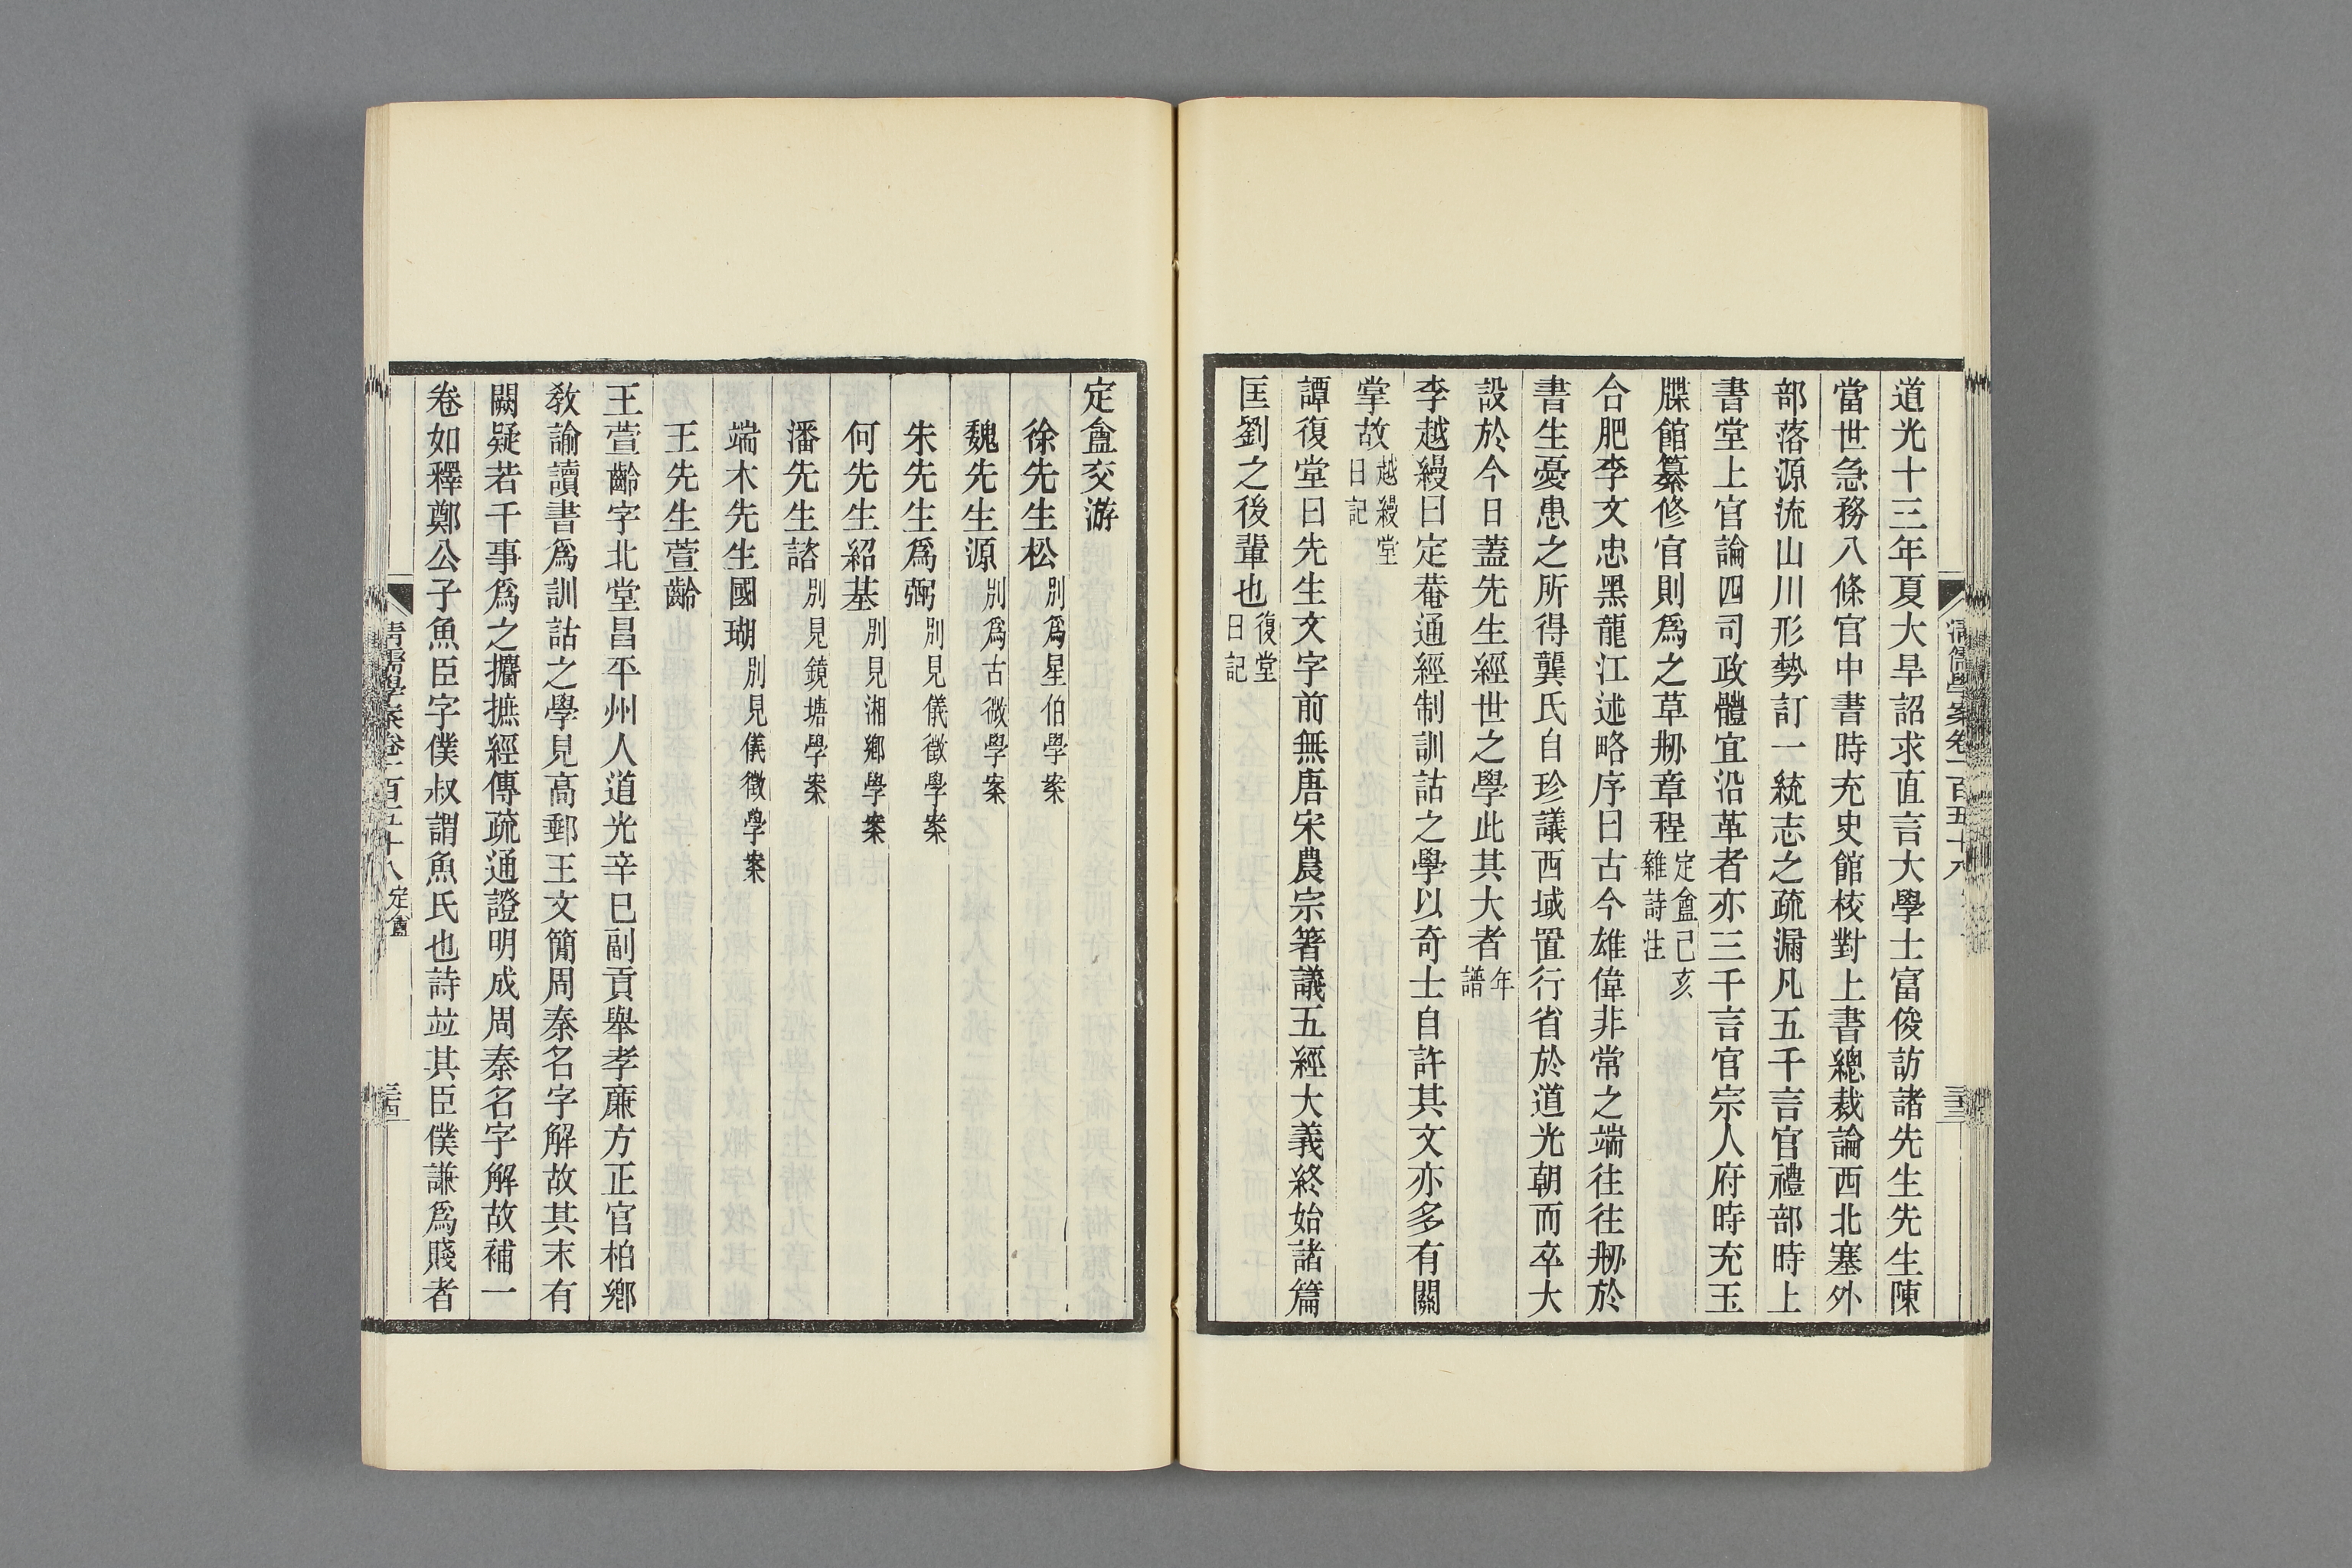 道光十三年夏大旱詔求直言大學士富俊訪諸先生先生陳
當世急務八條官中書時充史館校對上書總裁論西北塞外
部落源流山川形勢訂一統志之疏漏凡五千言官禮部時上
書堂上官論四司政體宜沿革者亦三千言官宗人府時充玉
牒館纂修官則爲之草刱章程定盦己亥雜詩注
合肥李文忠黑龍江述略序曰古今雄偉非常之端往往刱於
書生憂患之所得龔氏自珍議西域置行省於道光朝而卒大
設於今日蓋先生經世之學此其大者年譜
李越縵曰定菴通經制訓詁之學以奇士自許其文亦多有關
掌故越縵堂日記
譚復堂曰先生文字前無唐宋農宗箸議五經大義終始諸篇
匡劉之後輩也復堂日記
清儒學案卷一百五十八
三十三
定盦交游
徐先生松別爲星伯學案
魏先生源別爲古微學案
朱先生爲弼別見儀徵學案
何先生紹基別見湘鄉學案
潘先生諮別見鏡塘學案
端木先生國瑚別見儀徵學案
王先生萱齡
王萱齡字北堂昌平州人道光辛巳副貢舉孝廉方正官柏鄉
教諭讀書爲訓詁之學見高郵王文簡周秦名字解故其末有
闕疑若干事爲之攟摭經傳疏通證明成周秦名字解故補一
卷如釋鄭公子魚臣字僕叔謂魚氏也詩竝其臣僕謙爲賤者
清儒學案卷一百五十八 定盦
三十四